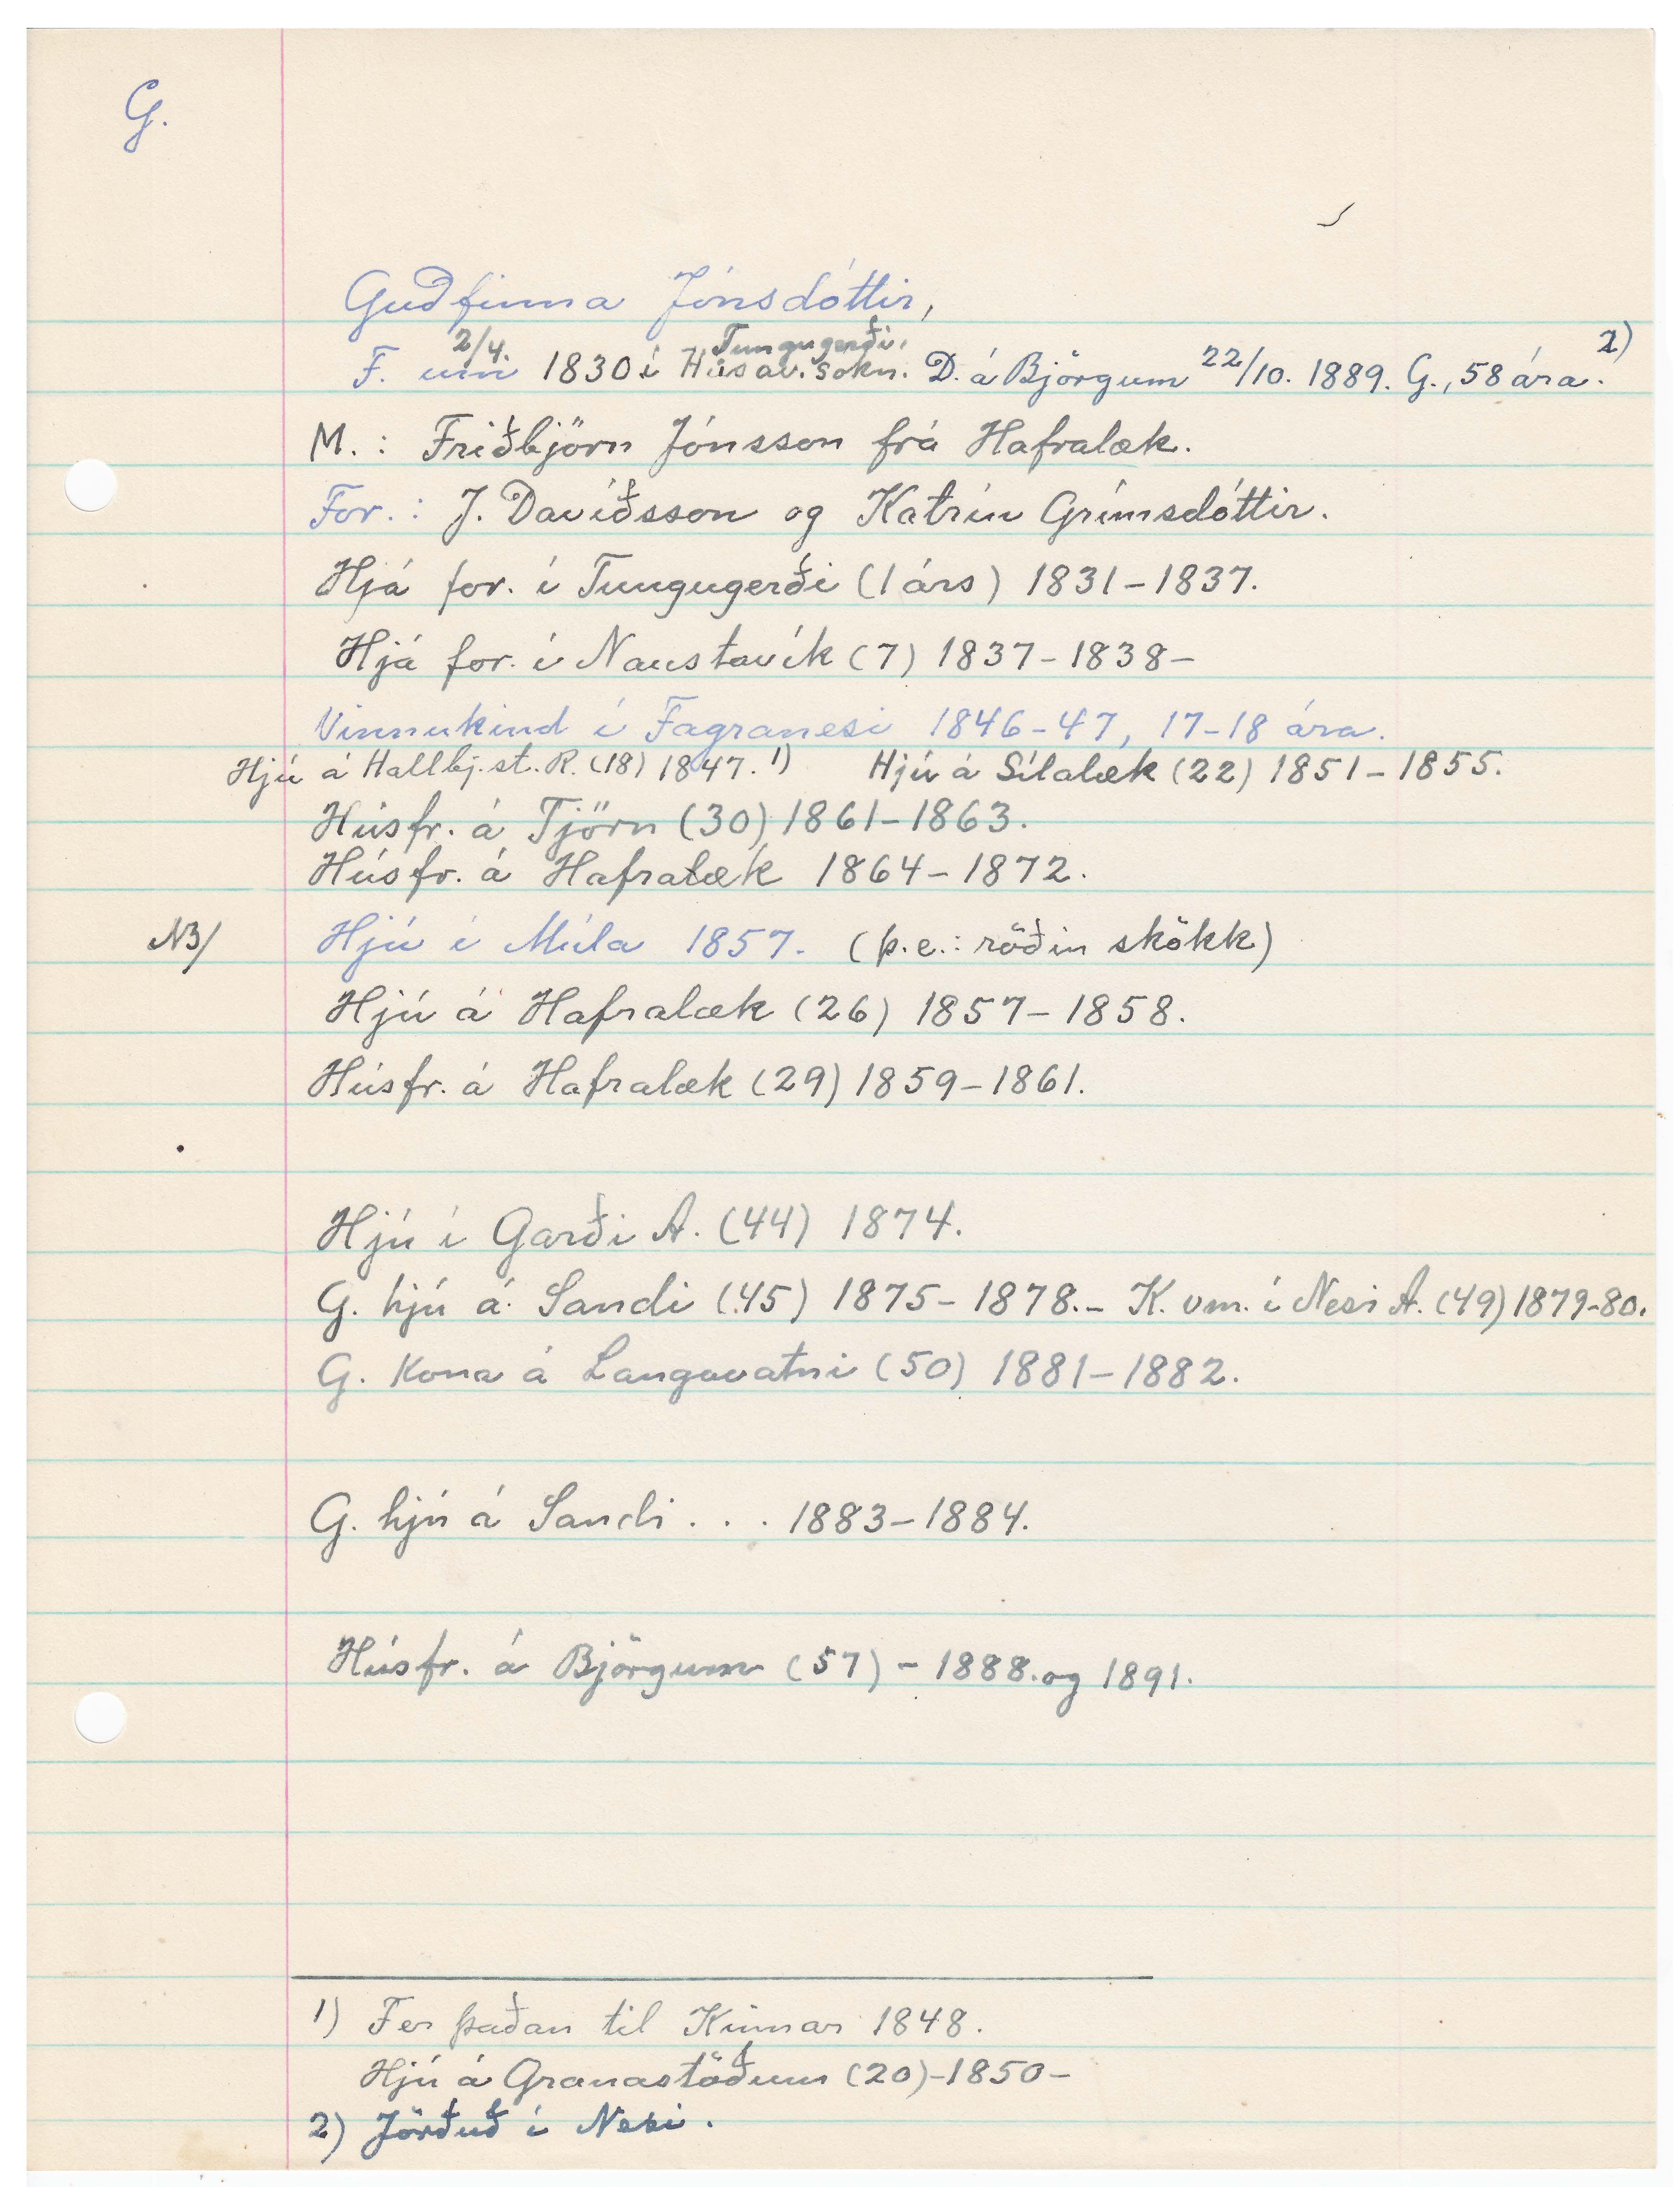 G.
Guðfinna Jónsdóttir,
2/4. Tungugerði.
F. um 1830 í Húsav.sókn. D. á Björgum 22/10. 1889. G., 58 ára. 2)
M.: Friðbjörn Jónsson frá Hafralæk.
For.: J. Davíðsson og Katrín Grímsdóttir.
Hjá for. í Tungugerði (1 árs) 1831-1837.
Hjá for. í Naustavík (7) 1837-1838-
Vinnukind í Fagranesi 1846-47, 17-18 ára.
Hjú á Hallbj.st. R. (18) 1847. 1) Hjú á Sílalæk (22) 1851-1855.
Húsfr. á Tjörn (30) 1861-1863.
Húsfr. á Hafralæk 1864-1872.
NB/ Hjú í Múla 1857. (þ.e.: röðin skökk)
Hjú á Hafralæk (26) 1857-1858.
Húsfr. á Hafralæk (29) 1859-1861.
Hjú í Garði A. (44) 1874.
G. hjú á Sandi (45) 1875-1878.- K. vm. í Nesi A. (49) 1879-80.
G. Kona á Langavatni (50) 1881-1882.
G. hjú á Sandi . . . 1883-1884.
Húsfr. á Björgum (57) - 1888. og 1891.
1) Fer þaðan til Kinnar 1848.
Hjú á Granastöðum (20)-1850-
2) Jörðuð í Nesi.